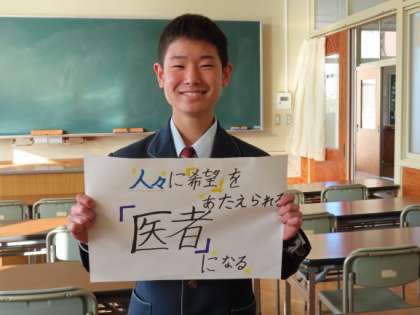 人々に『希望』を
あたえられる
「医者」
になる